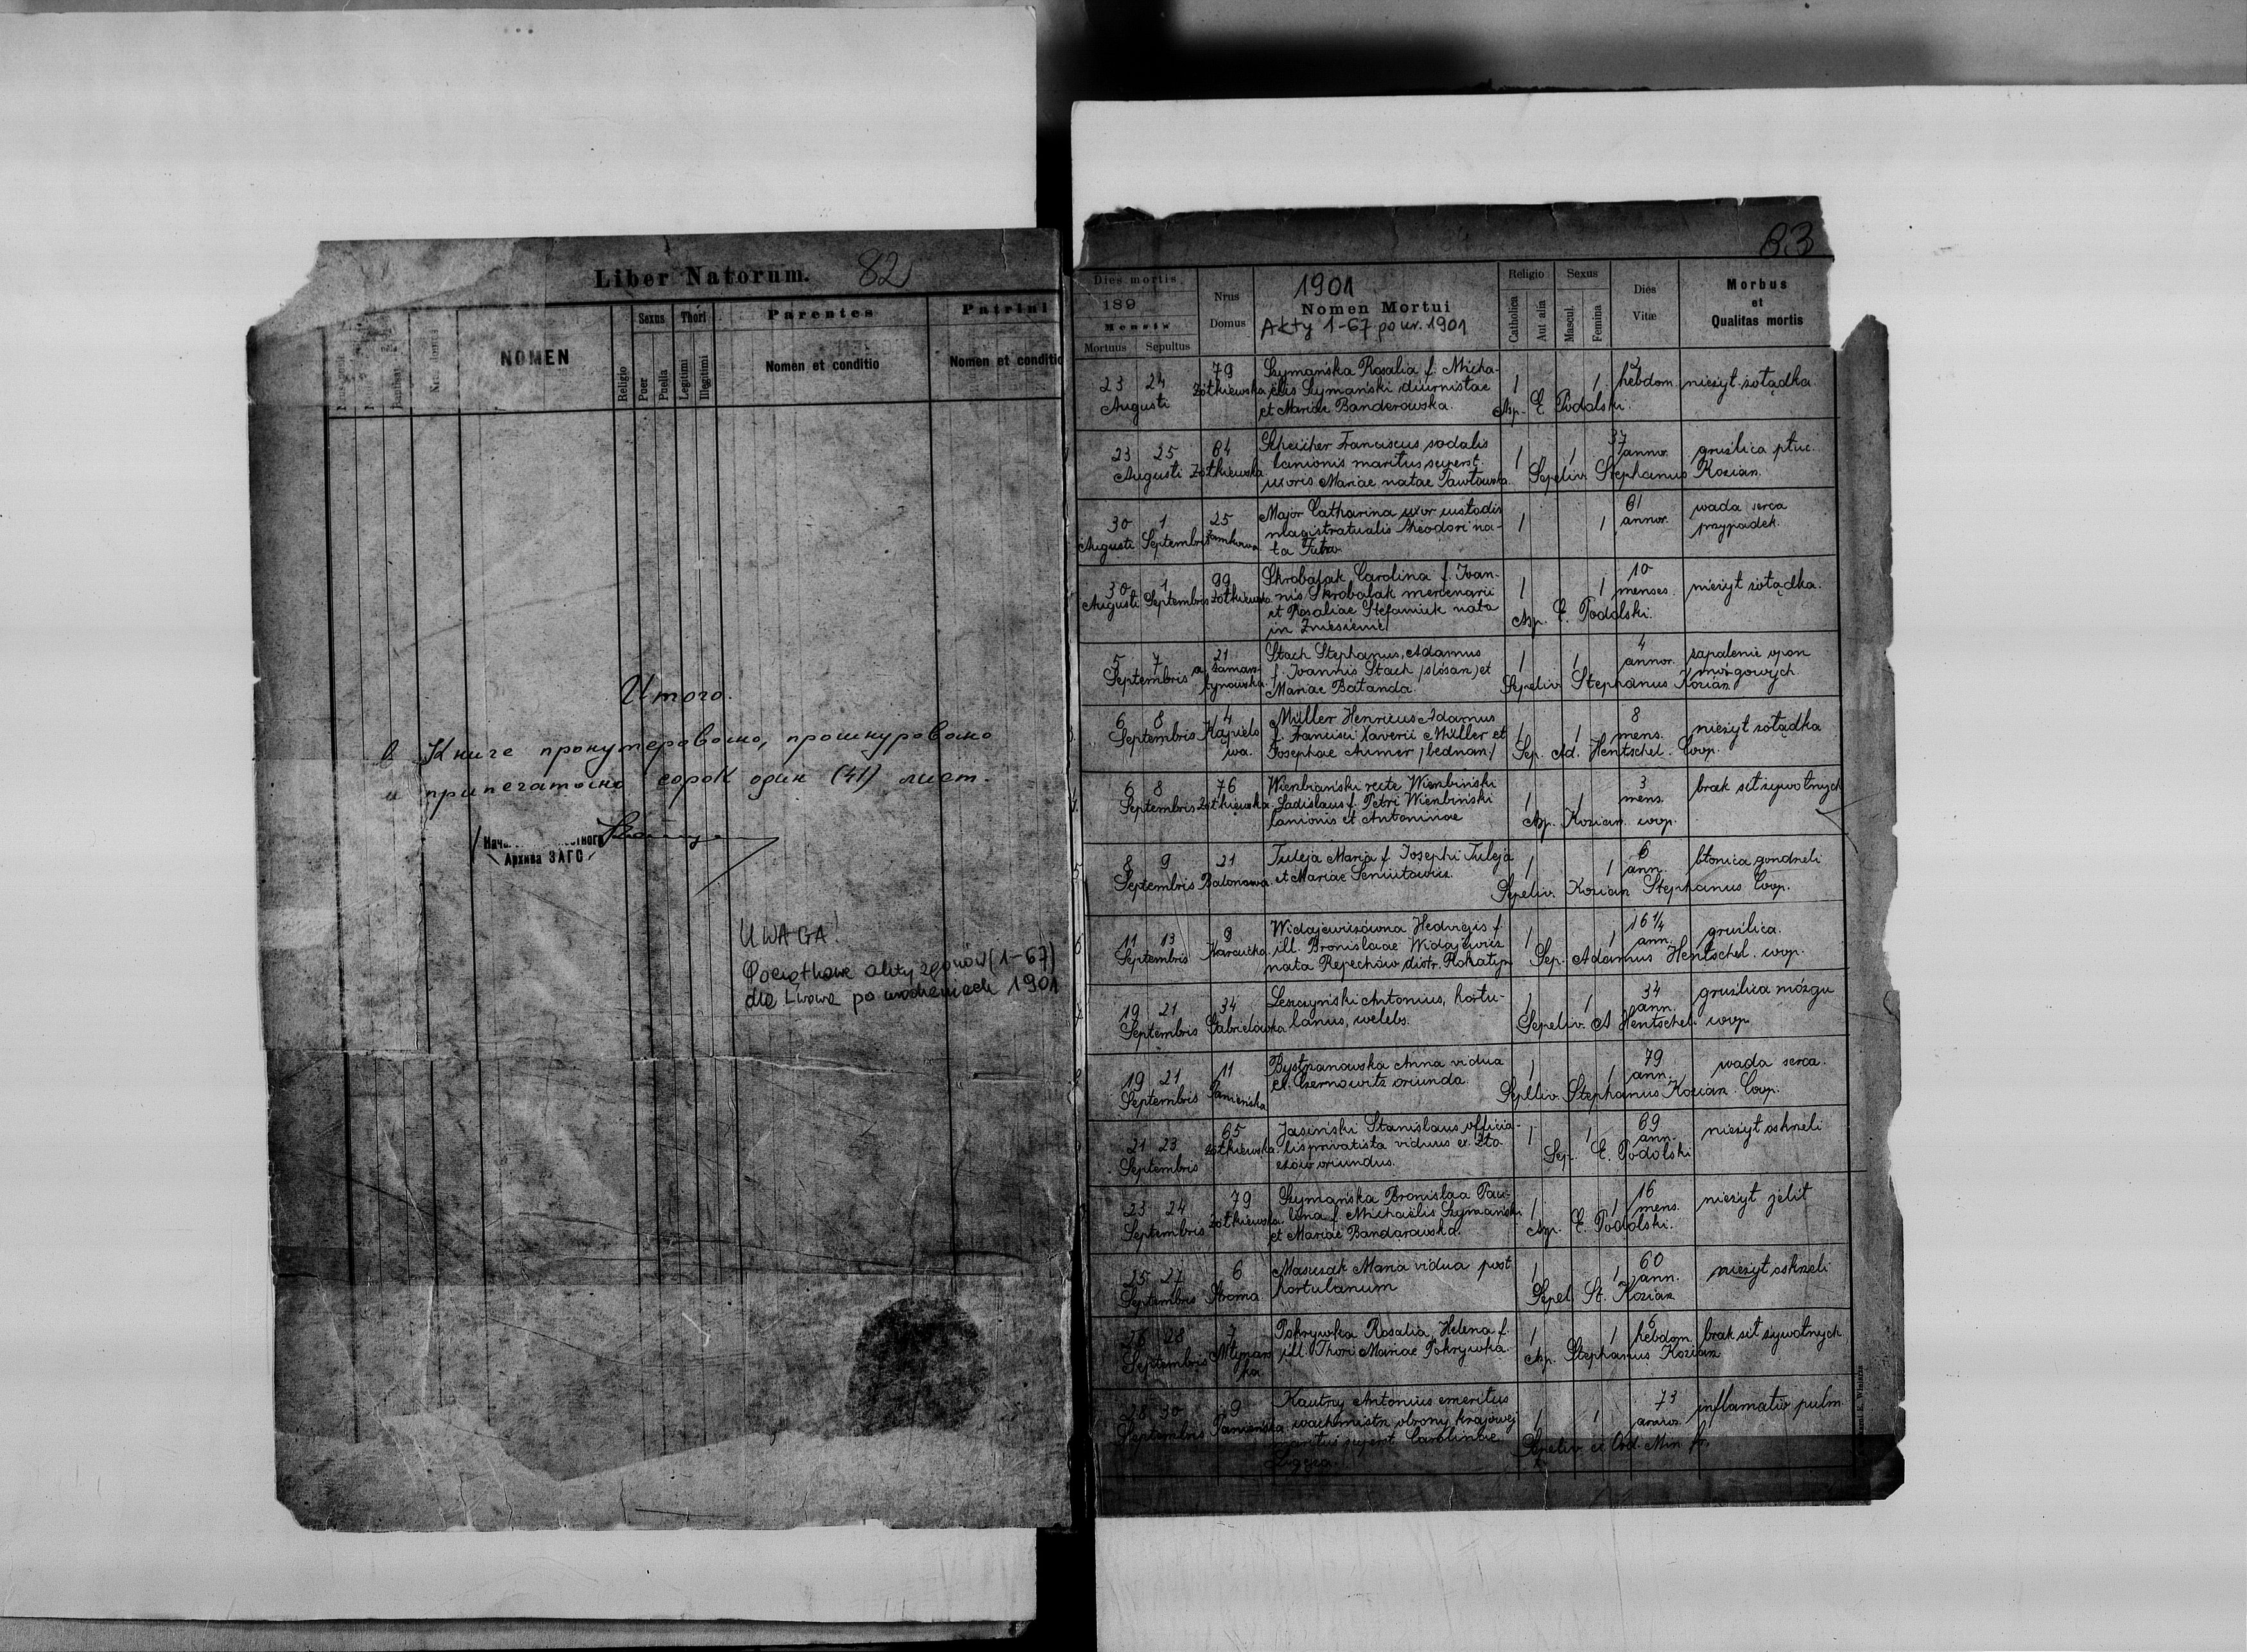 Liber Natorum. 82
NOMEN
Religio
Sexus
Puer
Puella
Thori
Legitimi
Illegitimi
Parentes
Nomen et conditio
Patrini
Nomen et conditio
Итого.
в Книге пронумеровано, прошнуровано
и припечатано сорок один (41) лист.
Архива ЗАГС
UWAGA!
Początkowe akty zgonów (1-67)
dla Lwowa po urodzeniach 1901
83
Dies mortis
189
Mensis
Mortuus Sepultus
Nrus
Domus
1901
Nomen Mortui
Akty 1-67 po ur. 1901
Religio
Catholica
Aut alia
Sexus
Mascul.
Femina
Dies
Vitæ
Morbus
et
Qualitas mortis
23 24 79 Szymańska Rosalia f. Micha-
Augusti Żółkiewska ëlis Szymański diurnistae 1 1 2 hebdom. nieżyt żołądka
et Mariae Banderowska. Asp. E. Podolski.
23 25 84 Scheicher Franciscus sodalis 37
Augusti Żółkiewska lanionis maritus superst. 1 1 annor. gruźlica płuc.
uxoris Mariae natae Pawłowska. Sepeliv. Stephanus Kozian.
30 1 25 Major Catharina uxor custodis 61 wada serca
Augusti Septembris Zamkowa magistratualis Theodori na- 1 1 annor. przypadek.
ta Futro
30 1 99 Skrobałak Carolina f. Ioan- 10
Augusti Septembris Żółkiewska nis Skrobałak mercenarii 1 1 menses. nieżyt żołądka.
et Rosaliae Stefaniuk nata Asp. E. Podolski.
in Zniesienie
5 7 21 Stach Stephanus, Adamus 4 zapalenie opon
Septembris f. Ioannis Stach /ślósarz/ et 1 1 annor. mózgowych
Mariae Bałanda. Sepeliv. Stephanus Kozian
6 8 4 Müller Henricus Adamus 8
Septembris f. Francisci Xaverii Müller et 1 1 mens. nieżyt żołądka
Josephae /bednarz/ Sep. Ad. Hentschel. Coop.
6 8 76 Wierzbiański recte Wierzbiński 3 brak sił żywotnych
Septembris Żółkiewska Ladislaus f. Petri Wierzbiński 1 1 mens.
lanionis et Antoninae Asp. Kozian coop.
8 9 21 Tuleja Maria f. Josephi Tuleja 6 błonica gardzieli
Septembris Balonowa et Mariae 1 1 ann.
Sepeliv. Kozian Stephanus Coop.
11 13 9 Widajewiczówna Hedvigis f. 16 1/4 gruźlica.
Septembris ill. Bronislaae Widajewicz 1 1 ann.
nata Repechów distr. Rohatyn Sep. Adamus Hentschel. coop.
19 21 34 Leszczyński Antonius, hortu- 34 gruźlica mózgu
Septembris Gabrielówka lanus, caelebs. 1 1 ann.
Sepeliv. A. Hentschel. coop
19 21 11 Bystrzanowska Anna vidua 79 wada serca.
Septembris Panieńska ex Czernowitz oriunda. 1 1 ann.
Sepeliv. Stephanus Kozian. Coop.
21 23 65 Jasiński Stanislaus officia- 69 nieżyt oskrzeli
Septembris Żółkiewska lis privatista viduus ex Zło- 1 1 ann.
czów oriundus. Sep. E. Podolski
23 24 79 Szymańska Bronislaa Pau- 16 nieżyt jelit
Septembris Żółkiewska lina f. Michaëlis Szymański 1 1 mens.
et Mariae Bandarowska. Asp. E. Podolski.
25 27 6 Masiczak Maria vidua post 60 nieżyt oskrzeli
Septembris Stroma hortulanum 1 1 ann.
Sepel. St. Kozian
26 28 7 Pokrywka Rosalia, Helena f. 6 hebdom. brak sił żywotnych
Septembris Młynarska ill. Thori Mariae Pokrywka. 1 1
Asp. Stephanus Kozian
28 30 9 Kautny Antonius emeritus 73 inflamatio pulm.
Septembris Panieńska wachmistrz obrony krajowej 1 1 annor.
maritus superst. Carolinae Sepeliv. ex Ord. Min.